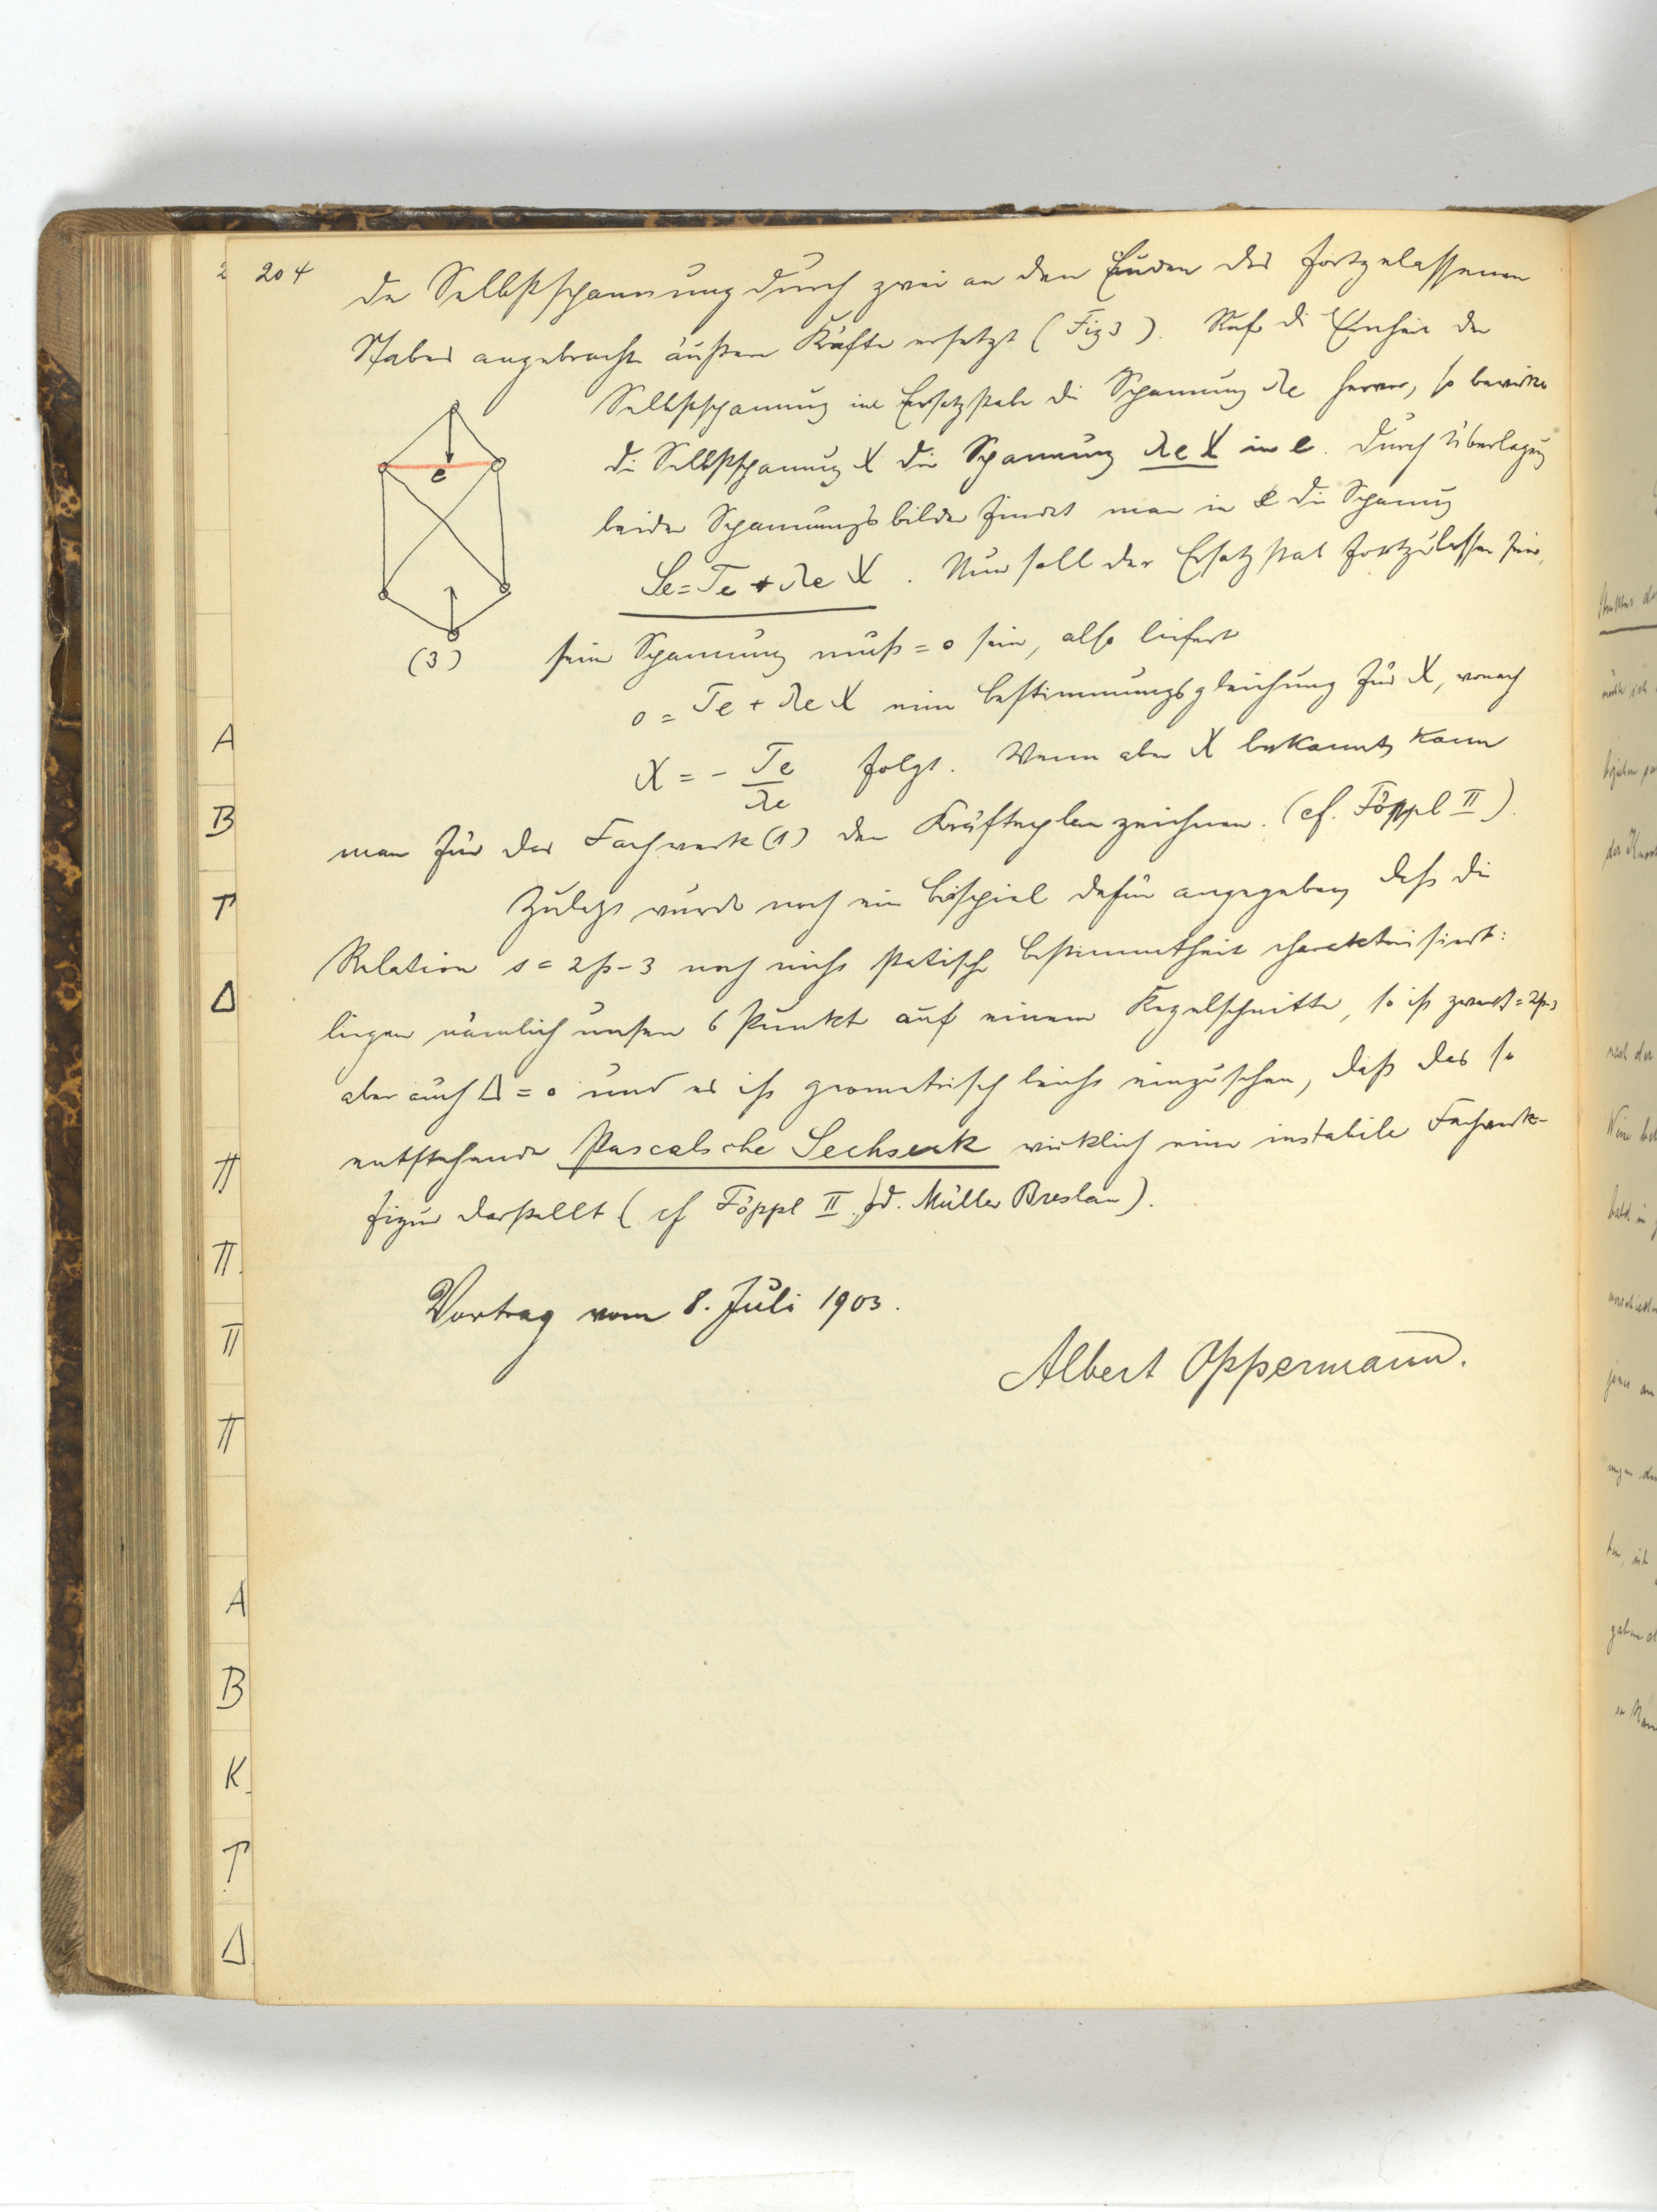 204
die Selbstspannung durch zwei an den Enden des fortgelassenen
Stabes angebrachte äußere Kräfte ersetzt (Fig 3). Ruft die Einheit der
Selbstspannung im Ersatzstabe die Spannung λe hervor, so bewirkt
die Selbstspannung X die Spannung λe X in e. Durch Überlagerung
beider Spannungsbilder findet man in e die Spannung
Se = Te + λe X. Nun soll der Ersatzstab fortzulassen sein,
e
(3)
seine Spannung muß = 0 sein, also liefert
0 = Te + λe X eine Bestimmungsgleichung für X, wonach
X = - Te/λe folgt. Wenn aber X bekannt, kann
man für das Fachwerk (1) den Kräfteplan zeichnen. (cf. Föppl II).
Zuletzt wurde noch ein Beispiel dafür angegeben, daß die
Relation s = 2p-3 noch nicht statische Bestimmtheit charakterisiert:
liegen nämlich unsere 6 Punkte auf einem Kegelschnitte, so ist zwar s = 2p-3
aber auch Δ = 0 und es ist geometrisch leicht einzusehen, daß das so
entstehende Pascalsche Sechseck wirklich eine instabile Fachwerk-
figur darstellt (cf Föppl II, Müller Breslau).
Vortrag vom 8. Juli 1903.
Albert Oppermann.
A
B
T
Δ
π
π
π
π
A
B
K
T
Δ